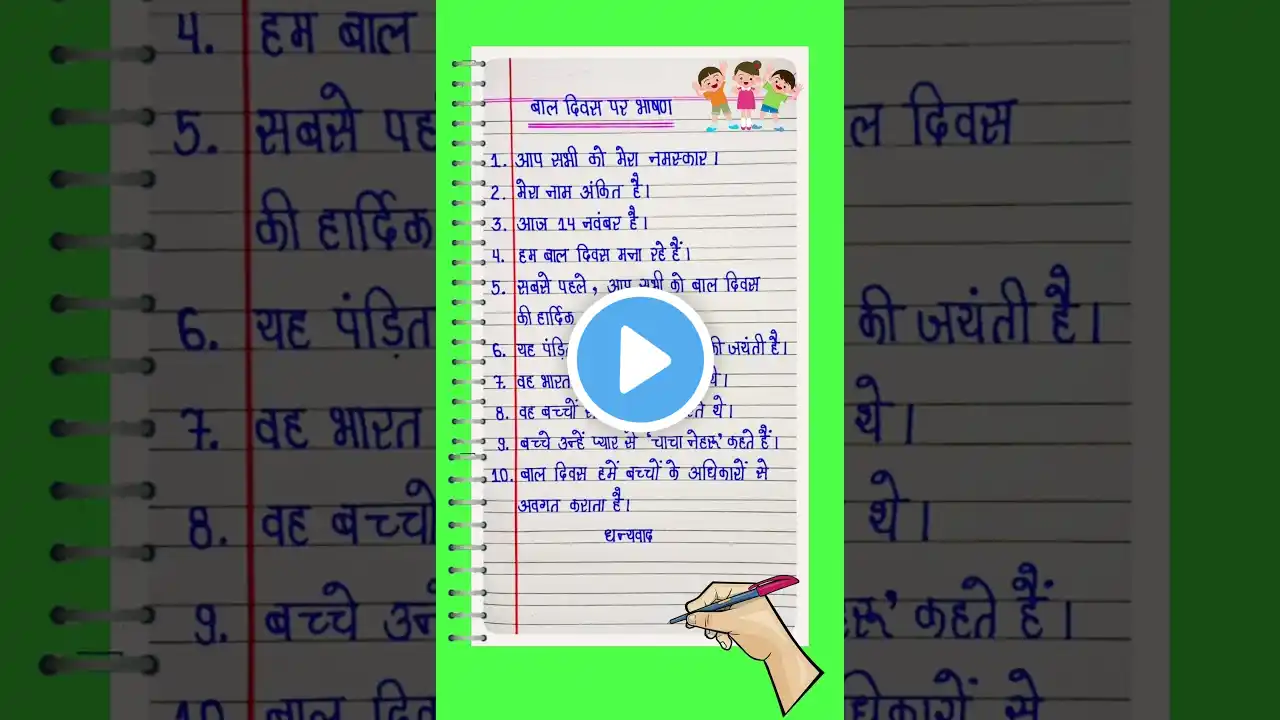 बाल दिवस पर भाषण
1. आप सभी को मेरा नमस्कार।
2. मेरा नाम अंकित है।
3. आज 14 नवंबर है।
4. हम बाल दिवस मना रहे हैं।
5. सबसे पहले, आप सभी को बाल दिवस
की हार्दिक
6. यह पंडित की जयंती है।
7. वह भारत थे।
8. वह बच्चों थे।
9. बच्चे उन्हें प्यार से 'चाचा नेहरू' कहते हैं।
10. बाल दिवस हमें बच्चों के अधिकारों से
अवगत कराता है।
धन्यवाद